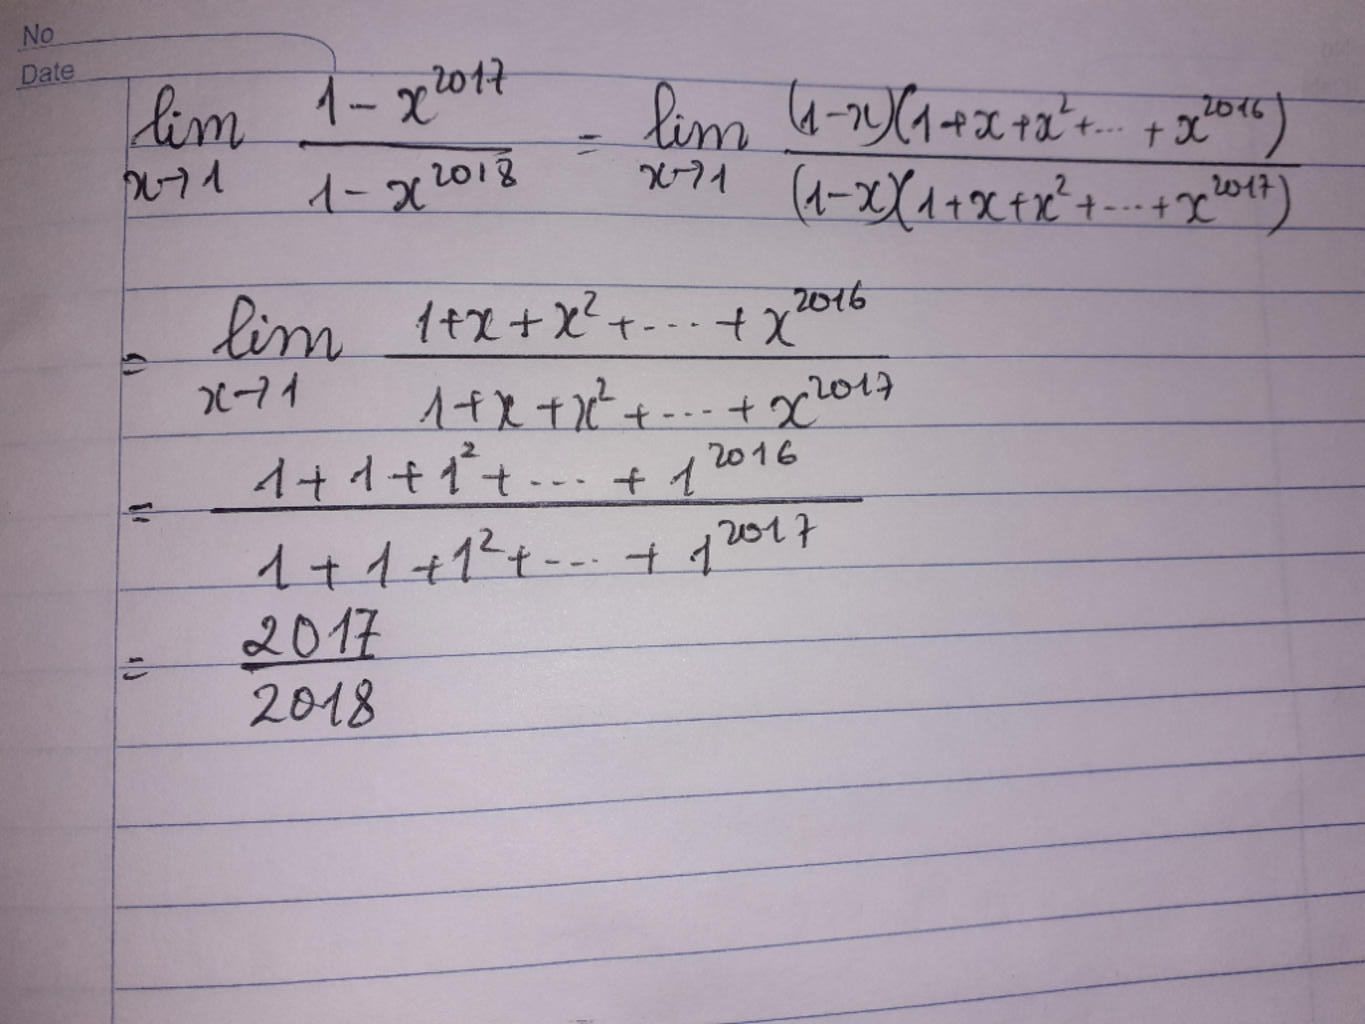 No
Date
lim x→1 (1 - x^2017)/(1 - x^2018) = lim x→1 ((1-x)(1+x+x^2+...+x^2016))/((1-x)(1+x+x^2+...+x^2017))
= lim x→1 (1+x+x^2+...+x^2016)/(1+x+x^2+...+x^2017)
= (1+1+1^2+...+1^2016)/(1+1+1^2+...+1^2017)
= 2017/2018